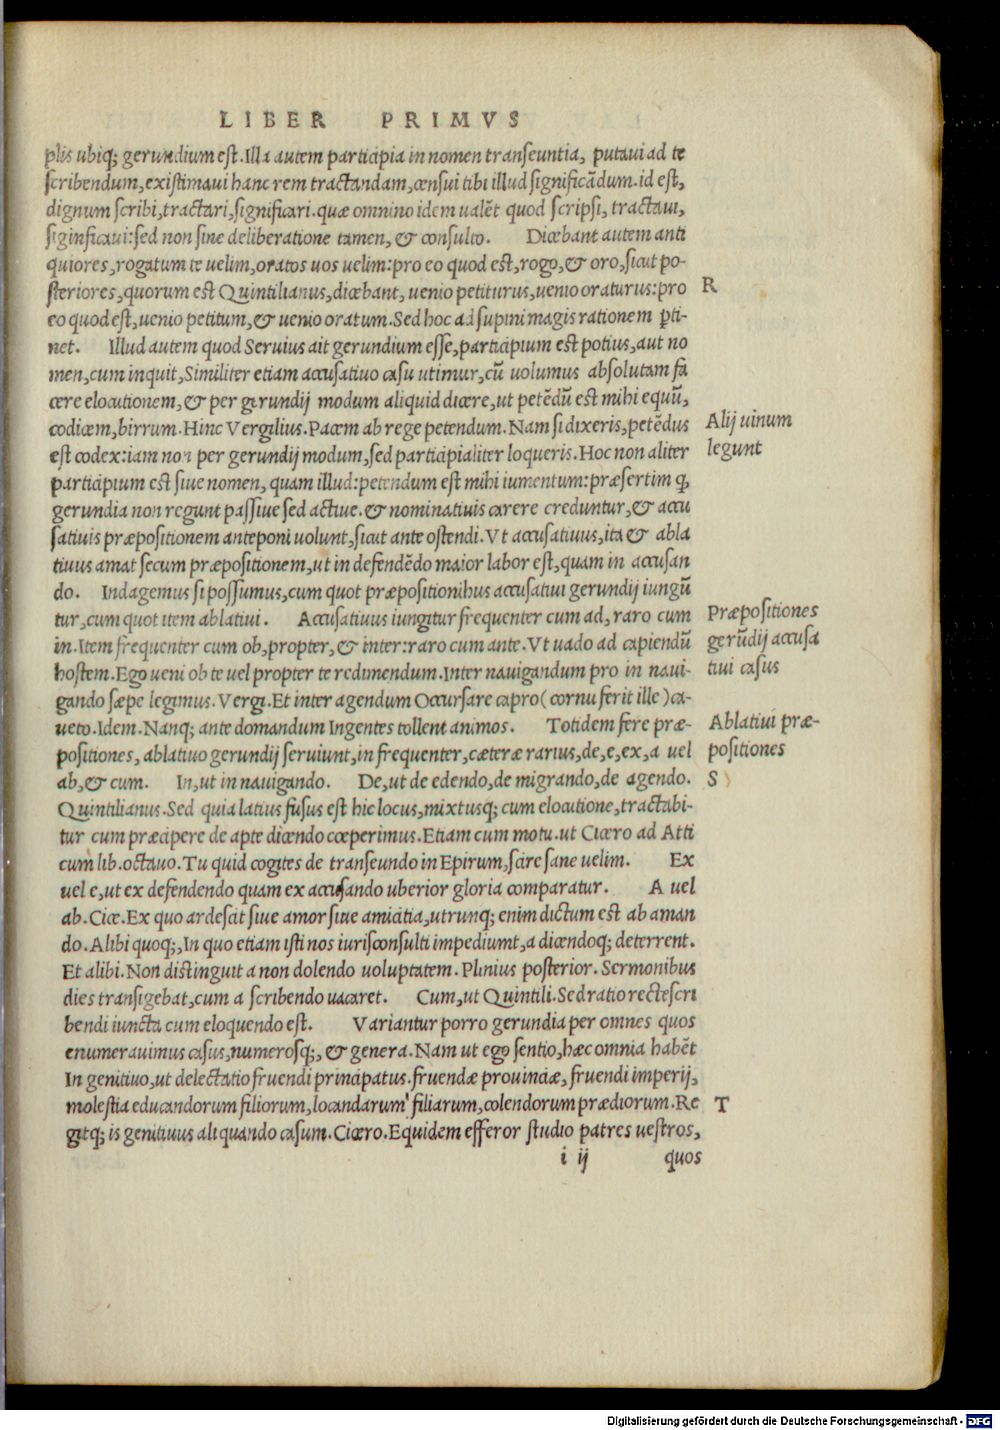 LIBER PRIMVS
plis ubiq; gerundium est. Illa autem participia in nomen transeuntia, putaui ad te
scribendum, existimaui hanc rem tractandam, censui tibi illud significãdum. id est,
dignum scribi, tractari, significari. quæ omnino idem ualẽt quod scripsi, tractaui,
siginficaui: sed non sine deliberatione tamen, & consulto. Dicebant autem anti
quiores, rogatum te uelim, oratos uos uelim: pro eo quod est, rogo, & oro, sicut po-
steriores, quorum est Quintilianus, dicebant, uenio petiturus, uenio oraturus: pro
R
eo quod est, uenio petitum, & uenio oratum. Sed hoc ad supini magis rationem ꝑti-
net. Illud autem quod Seruius ait gerundium esse, participium est potius, aut no
men, cum inquit, Similiter etiam accusatiuo casu utimur, cũ uolumus absolutam fa
cere elocutionem, & per gerundij modum aliquid dicere, ut petẽdũ est mihi equũ,
codicem, birrum. Hinc Vergilius. Pacem ab rege petendum. Nam si dixeris, petẽdus
Alij uinum
est codex: iam non per gerundij modum, sed participialiter loqueris. Hoc non aliter
legunt
participium est siue nomen, quam illud: petendum est mihi iumentum: præsertim ꝙ
gerundia non regunt passiue sed actiue. & nominatiuis carere creduntur, & accu
satiuis præpositionem anteponi uolunt, sicut ante ostendi. Vt accusatiuus, ita & abla
tiuus amat secum præpositionem, ut in defendẽdo maior labor est, quam in accusan
do. Indagemus si possumus, cum quot præpositionibus accusatiui gerundij iungũ
tur, cum quot item ablatiui. Accusatiuus iungitur frequenter cum ad, raro cum
Præpositiones
in. Item frequenter cum ob, propter, & inter: raro cum ante. Vt uado ad capiendũ
gerũdij accusa
hostem. Ego ueni ob te uel propter te redimendum. Inter nauigandum pro in naui-
tiui casus
gando sæpe legimus. Vergi. Et inter agendum Occursare capro (cornu ferit ille) ca-
ueto. Idem. Nanq; ante domandum Ingentes tollent animos. Totidem fere præ-
Ablatiui præ-
positiones, ablatiuo gerundij seruiunt, in frequenter, cæteræ rarius, de, e, ex, a uel
positiones
ab, & cum. In, ut in nauigando. De, ut de edendo, de migrando, de agendo.
S
Quintilianus. Sed quia latius fusus est hic locus, mixtusq; cum elocutione, tractabi-
tur cum præcipere de apte dicendo cœperimus. Etiam cum motu. ut Cicero ad Atti
cum lib. octauo. Tu quid cogites de transeundo in Epirum, scire sane uelim. Ex
uel e, ut ex defendendo quam ex accusando uberior gloria comparatur. A uel
ab. Cice. Ex quo ardescit siue amor siue amicitia, utrunq; enim dictum est ab aman
do. Alibi quoq;, In quo etiam isti nos iurisconsulti impediunt, a dicendoq; deterrent.
Et alibi. Non distinguit a non dolendo uoluptatem. Plinius posterior. Sermonibus
dies transigebat, cum a scribendo uacaret. Cum, ut Quintili. Sed ratio recte scri
bendi iuncta cum eloquendo est. Variantur porro gerundia per omnes quos
enumerauimus casus, numerosq;, & genera. Nam ut ego sentio, hæc omnia habẽt
In genitiuo, ut delectatio fruendi principatus. fruendæ prouinciæ, fruendi imperij,
molestia educandorum filiorum, locandarum filiarum, colendorum prædiorum. Re
T
gitq; is genitiuus aliquando casum. Cicero. Equidem efferor studio patres uestros,
i ij
quos
Digitalisierung gefördert durch die Deutsche Forschungsgemeinschaft - DFG